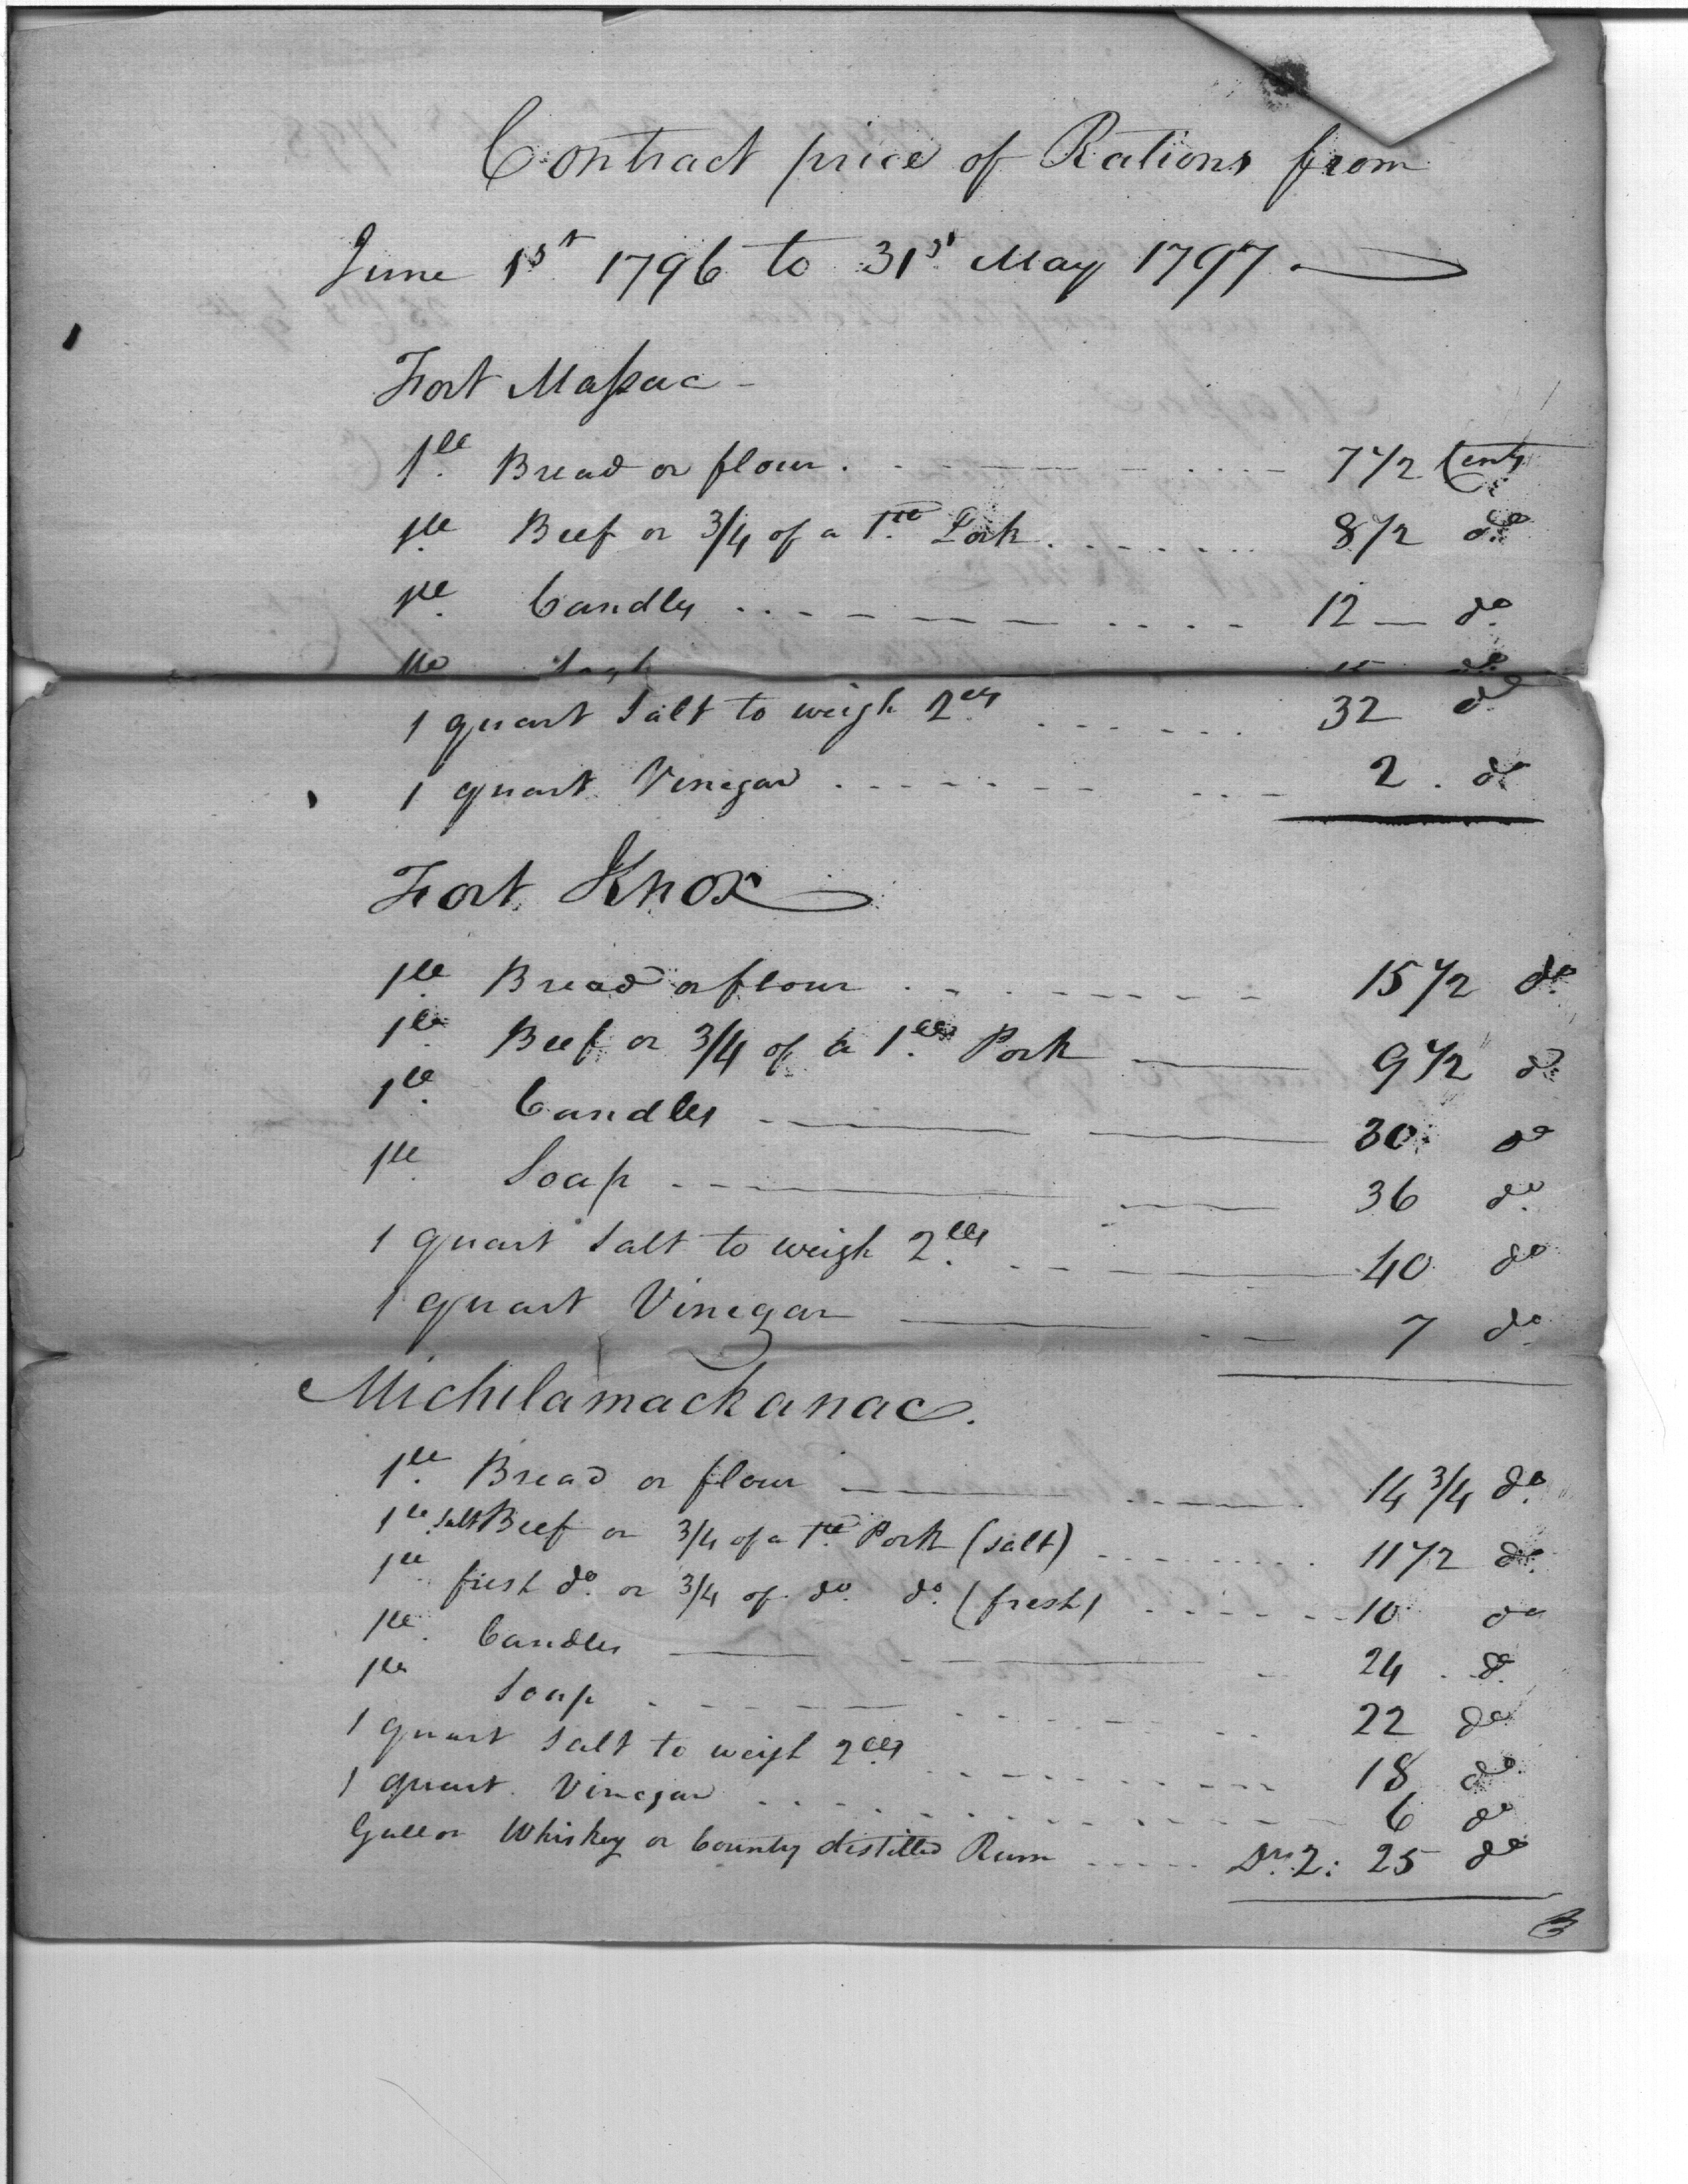 Contract price of Rations from
June 1st 1796 to 31st May 1797
Fort Massac
1lb Bread or flour 7 1/2 Cents
1lb Beef or 3/4 of a 1lb Pork 8 1/2 do
1lb Candles 12 do
1lb do
1 quart Salt to weigh 2lbs 32 do
1 quart Vinegar 2 do
Fort Knox
1lb Bread or flour 15 1/2 do
1lb Beef or 3/4 of a 1lb Pork 9 1/2 do
1lb Candles 30 do
1lb Soap 36 do
1 quart Salt to weigh 2lbs 40 do
1 quart Vinegar 7 do
Michilamackanac.
1lb Bread or flour 14 3/4 do
1lb Salt Beef or 3/4 of a 1lb Pork (salt) 11 1/2 do
1lb fresh do. or 3/4 of do do. (fresh) 10 do
1lb Candles 24 do
1lb Soap 22 do
1 quart Salt to weigh 2lbs 18 do
1 quart Vinegar 6 do
Gallon Whiskey or County distilled Rum Drs 2: 25 do